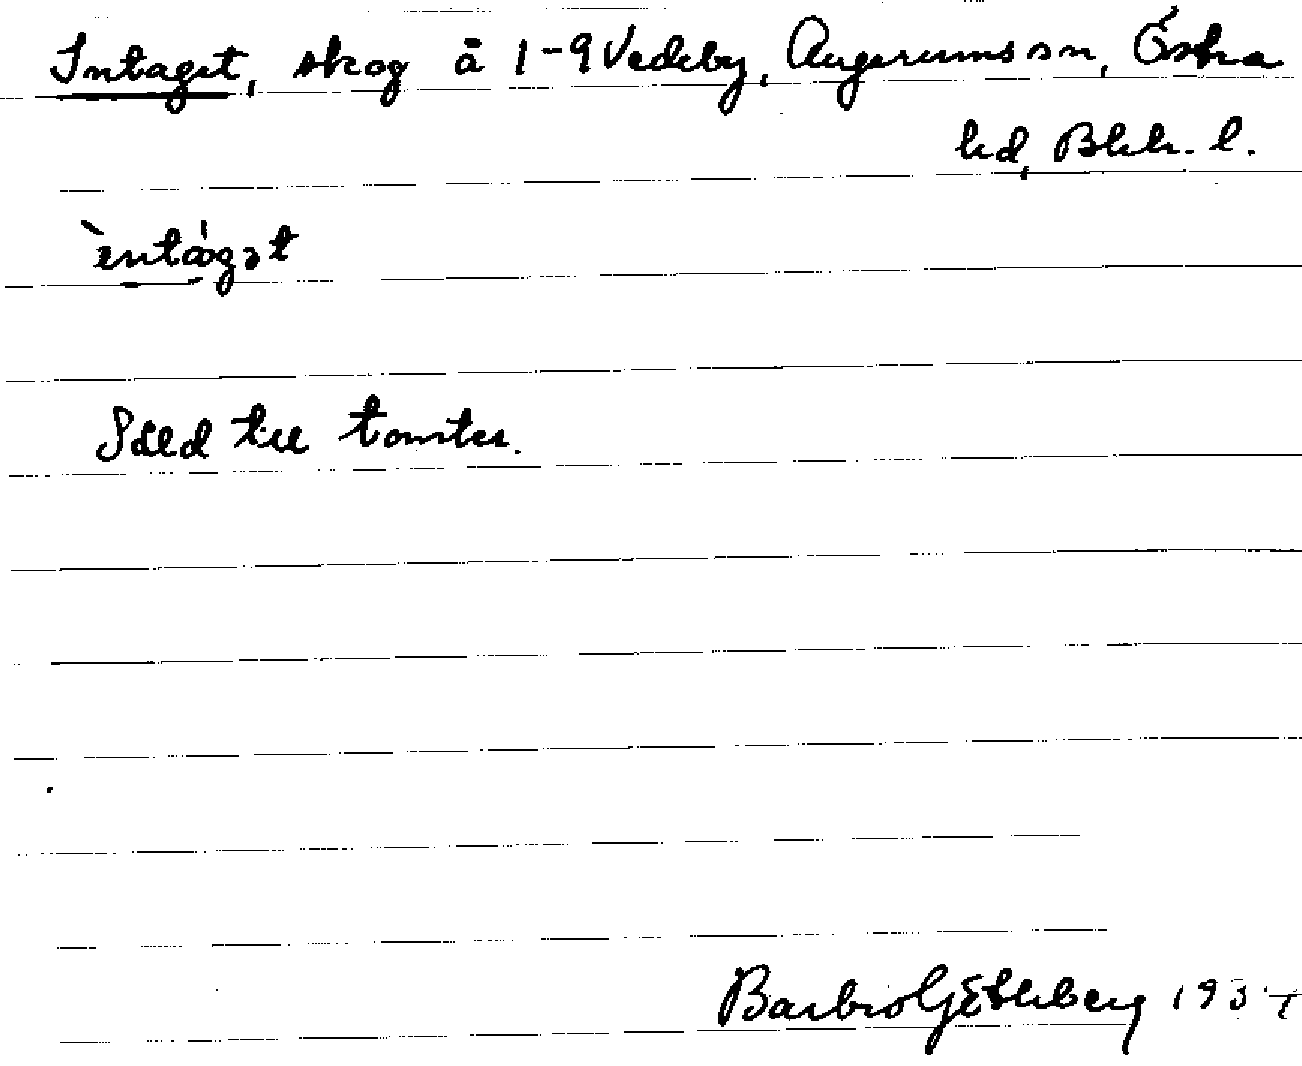 Intaget, skog å 1-9 Vedeby, Augerums sn, Östra
hd, Blek. l.
`entágət
Såld till tomter.
Barbro Götherberg 1937